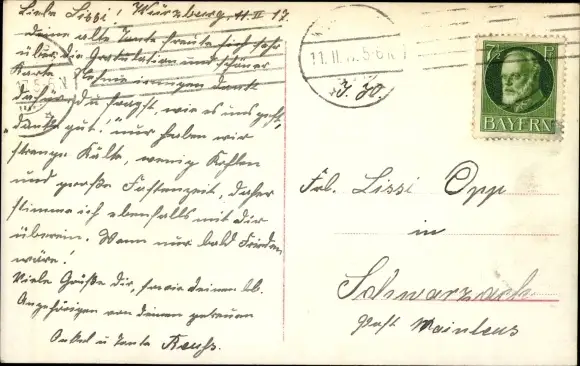 Liebe Lissi! Würzburg, 11.II 17.
deine alte Tante freute sich sehr
über die Gratulation und schöner
Karte. Nehme innigen Dank
dafür, du fragst, wie es uns geht,
"danke gut!" nur haben wir
strenge Kälte, wenig Kohlen
und große Fastenzeit, daher
stimme ich ebenfalls mit Dir
überein. Wenn nur bald Frieden
wäre!
Viele Grüße dir, sowie deinen lb.
Angehörigen von deinen getreuen
Onkel u Tante Reuß.
11. II. 5-6 N
7½ Pf
BAYERN
Frl. Lissi Opp
in
Schwarzach
Post Mainleus